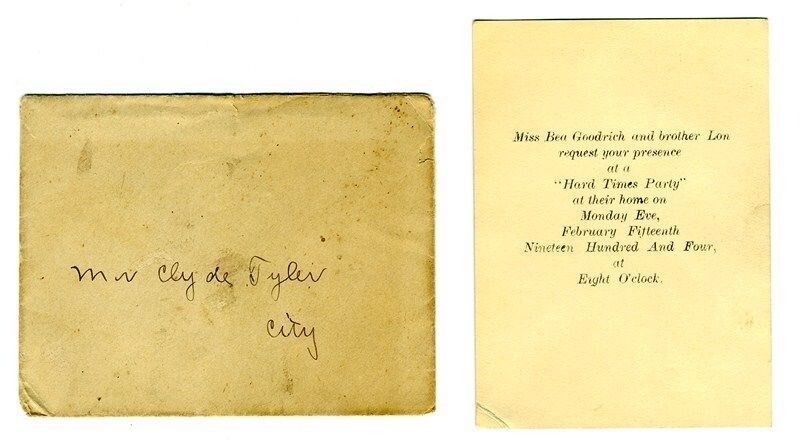 Mr Clyde Tyler
City
Miss Bea Goodrich and brother Lon
request your presence
at a
"Hard Times Party"
at their home on
Monday Eve,
February Fifteenth
Nineteen Hundred And Four,
at
Eight O'clock.